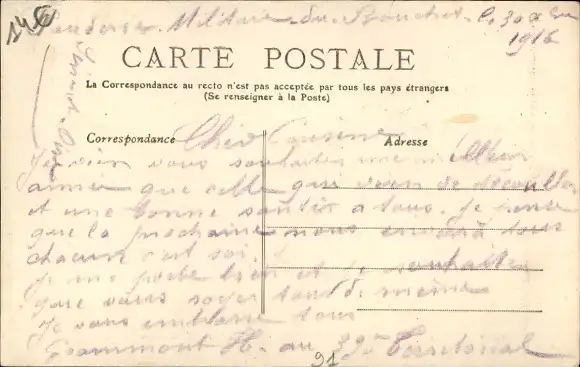 145
Poudrerie Militaire du Bouchet le 30 X
1916
CARTE POSTALE
La Correspondance au recto n'est pas acceptée par tous les pays étrangers
(Se renseigner à la Poste)
Correspondance
Adresse
Cher Cousine
Je vien vous souhaiter une meilleur
année que celle qui vien de
et une bonne santér a tous. Je pense
que la prochaine nous tous
chacun c'est soi.
Je me porte bien et je souhaite
que vous soyez tous de même
Je vous tous
Grammont H. au 39e Territorial
91